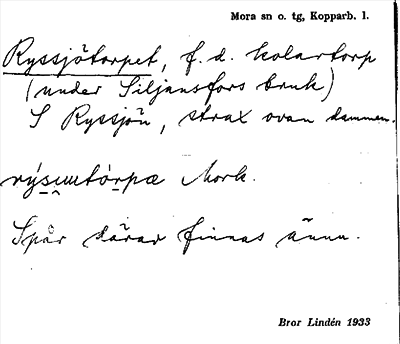 Mora sn o. tg, Kopparb. l.
Ryssjötorpet, f. d. kolartorp
(under Siljansfors bruk)
S Ryssjön, strax ovan dammen.
Mork.
Spår därav finnas ännu.
Bror Lindén 1933